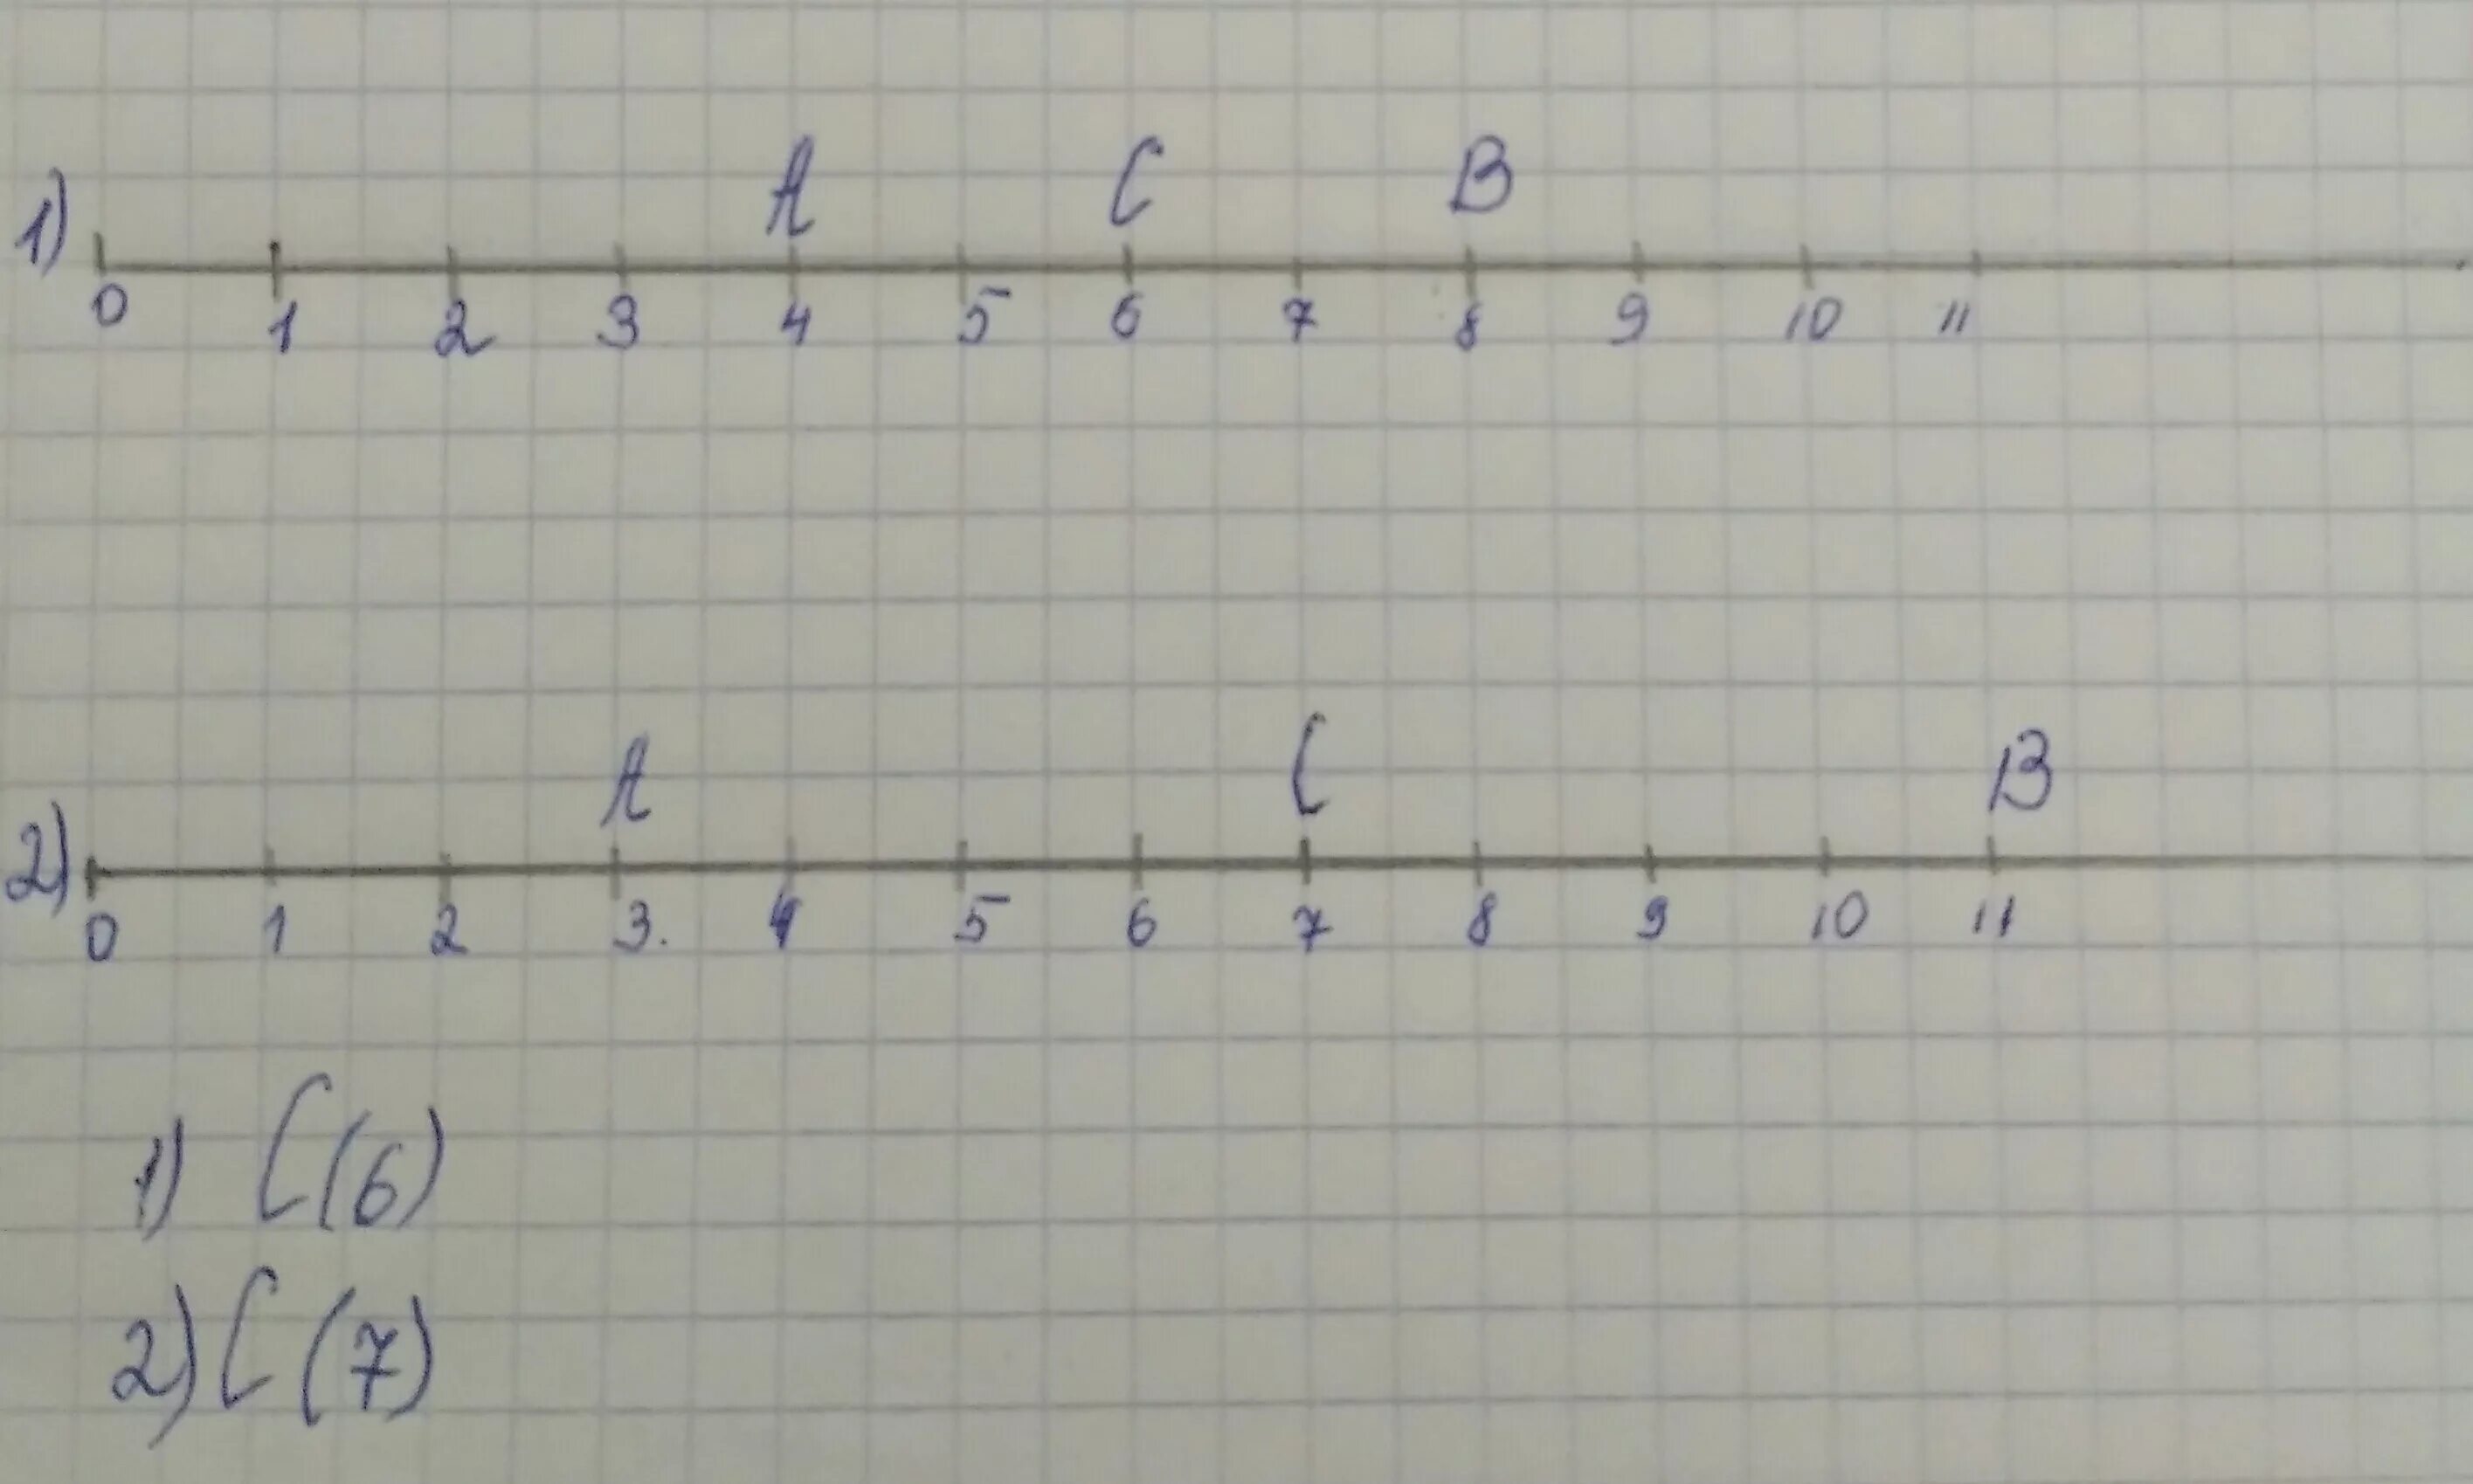 A C B
1)
0 1 2 3 4 5 6 7 8 9 10 11
A C B
2)
0 1 2 3. 4 5 6 7 8 9 10 11
1) C(6)
2) C(7)